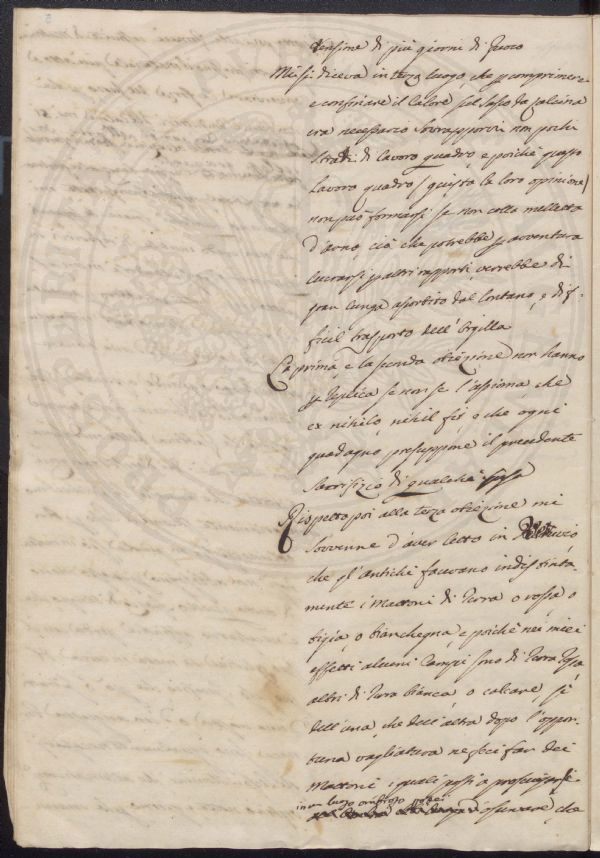 di più giorni di fuoco
Mi si diceva in terzo luogo, che p comprimere
e confinare il calore sul sasso da calcina
era necessario sovrapporvi non pochi
strati di lavoro quadro e poichè questo
lavoro quadro (questa la loro opinione)
non può formarsi se non colla melletta
d'arno, ciò che potrebbe p avventura
lucrarsi p altri rapporti, verrebbe di
gran lunga assorbito dal lontano, e dif-
ficil trasporto dell'Argilla
La prima e la seconda obiezione non hanno
p replica se non se l'assioma che
ex nihilo, nihil fit, o che ogni
guadagno presuppone il precedente
sacrifizio di qualche cosa
Rispetto poi alla terza obiezione mi
sovvenne d'aver letto in Vitruvio,
che gl'antichi facevano indistinta-
mente i mattoni di terra o rossa o
bigia, o bianchegna, e poichè nei miei
effetti alcuni campi sono di terra rossa
altri di terra bianca, o calcare, sì
dell'una, che dell'altra dopo l'oppor-
tuna vagliatura ne feci far dei
mattoni, i quali posti a prosciugarsi
in un luogo ombroso potei
osservare, che